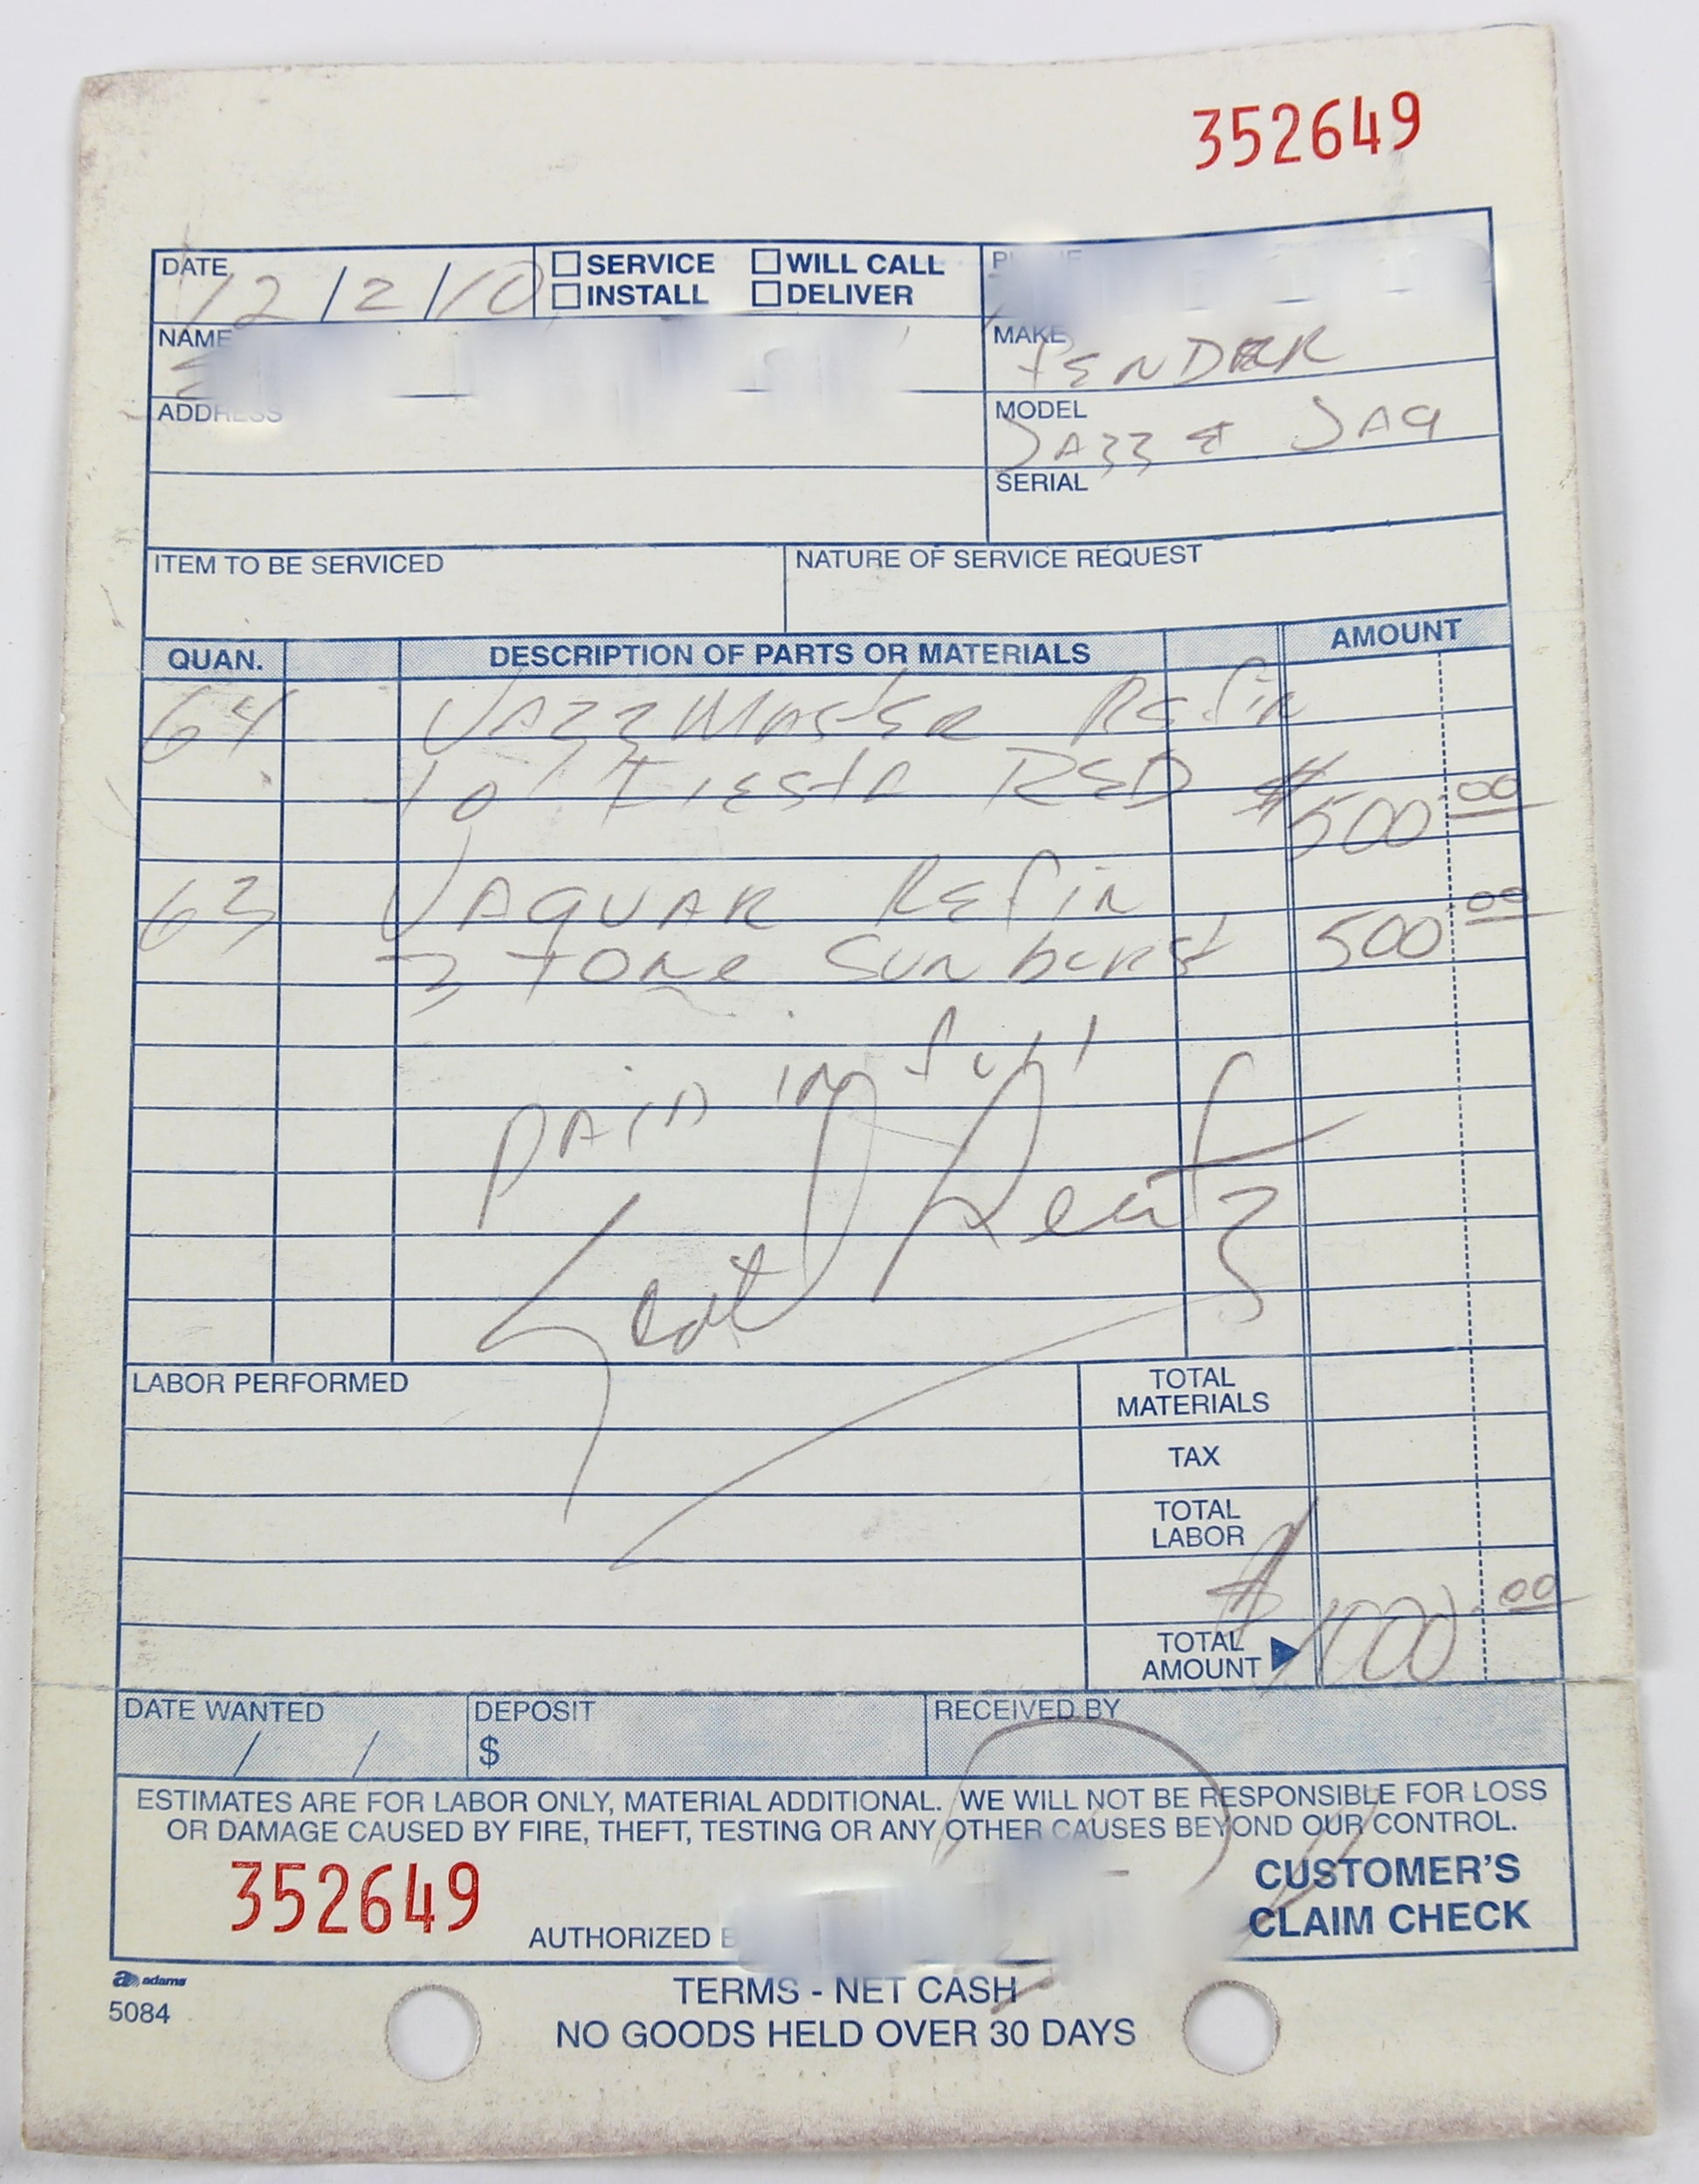 352649
DATE 12/2/10 SERVICE WILL CALL
INSTALL DELIVER
NAME
MAKE FENDER
ADDRESS
MODEL JAZZ & JAG
SERIAL
ITEM TO BE SERVICED NATURE OF SERVICE REQUEST
QUAN. DESCRIPTION OF PARTS OR MATERIALS AMOUNT
64 JAZZMASTER REfin
to FIESTA RED $500.00
63 JAGUAR REfin
3 TONE Sunburst 500.00
PAID in full
LABOR PERFORMED
TOTAL MATERIALS
TAX
TOTAL LABOR
TOTAL AMOUNT $1000.00
DATE WANTED / / DEPOSIT $ RECEIVED BY
ESTIMATES ARE FOR LABOR ONLY, MATERIAL ADDITIONAL. WE WILL NOT BE RESPONSIBLE FOR LOSS
OR DAMAGE CAUSED BY FIRE, THEFT, TESTING OR ANY OTHER CAUSES BEYOND OUR CONTROL.
352649
AUTHORIZED
CUSTOMER'S
CLAIM CHECK
adams
5084
TERMS - NET CASH
NO GOODS HELD OVER 30 DAYS